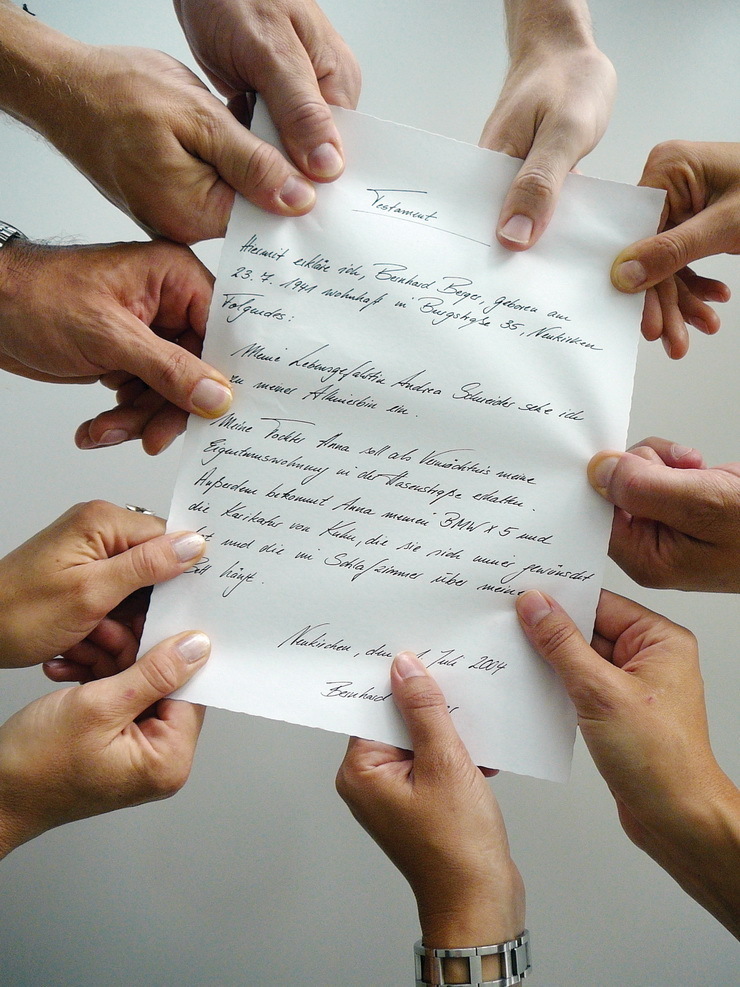 Testament
Hiermit erkläre ich, Bernhard Berger, geboren am
23. 7. 1941 wohnhaft in Burgstraße 35, Neukirchen
Folgendes:
Meine Lebensgefährtin Andrea Schneider setze ich
zu meiner Alleinerbin ein.
Meine Tochter Anna soll als Vermächtnis meine
Eigentumswohnung in der Hasenstraße erhalten.
Außerdem bekommt Anna meinen BMW X 5 und
die Karikatur von Kuhn, die sie sich immer gewünscht
hat und die im Schlafzimmer über meinem
Bett hängt.
Neukirchen, den 1. Juli 2004
Bernhard